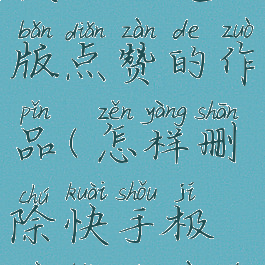 bǎn diǎn zàn de zuò
版点赞的作
pǐn zěn yàng shān
品(怎样删
chú kuài shǒu jí
除快手极